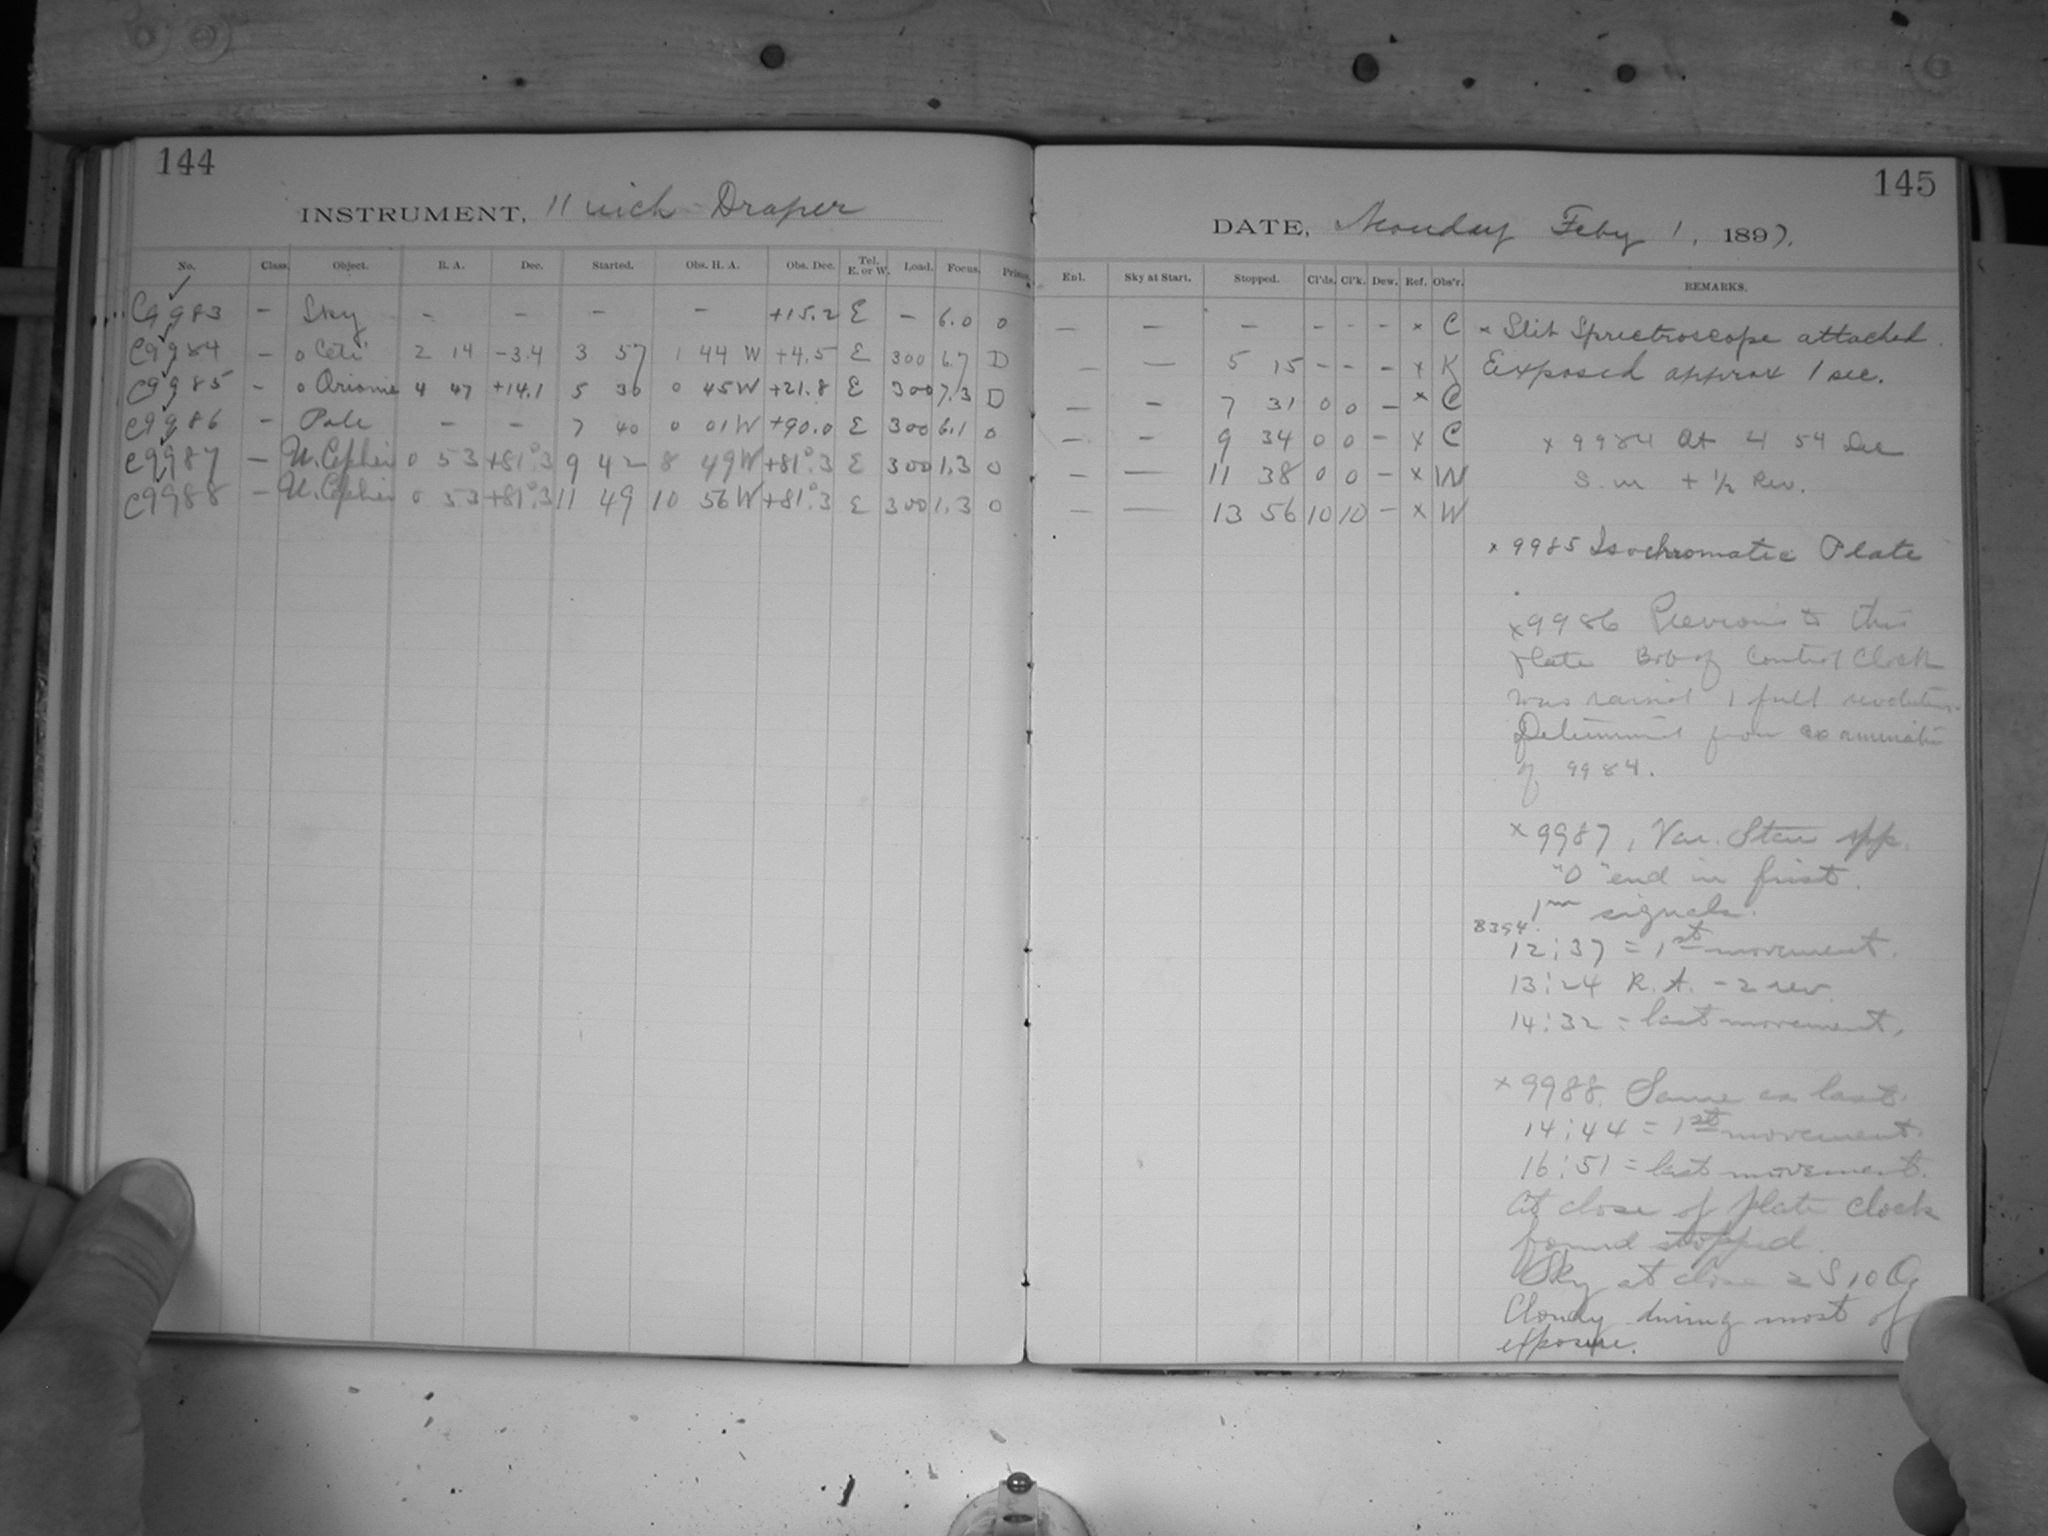 144
INSTRUMENT, 11 inch Draper
No. Class. Object. R. A. Dec. Started. Obs. H. A. Obs. Dec. Tel. E. or W. Load. Focus. Prism.
C9983 – Sky – – – – +15.2 E – 6.0 0
C9984 – o Ceti 2 14 –3.4 3 57 1 44 W +4.5 E 300 6.7 D
C9985 – o Orionis 4 47 +14.1 5 30 0 45 W +21.8 E 300 7.3 D
C9986 – Pole – – 7 40 0 01 W +90.0 E 300 6.1 0
C9987 – U. Cephei 0 53 +81°.3 9 42 8 49 W +81°.3 E 300 1.3 0
C9988 – U. Cephei 0 53 +81°.3 11 49 10 56 W +81°.3 E 300 1.3 0
145
DATE, Monday Feby 1, 1897.
Enl. Sky at Start. Stopped. Cl'ds. Cl'k. Dew. Ref. Obs'r. REMARKS.
– – – – – – x C x Slit Sprectroscope attached.
– – 5 15 – – – x K Exposed approx 1 sec.
– – 7 31 0 0 – x C
– – 9 34 0 0 – x C x 9984 At 4 54 Dec
– – 11 38 0 0 – x W S.m + 1/2 Rev.
– – 13 56 10 10 – x W
x 9985 Isochromatic Plate
x 9986 Previous to this
plate Bob of Control Clock
was raised 1 full revolution.
Determined from examination
of 9984.
x 9987, Var. Star spp.
"O" end in first.
1m signals.
8354
12:37 = 1st movement.
13:24 R.A. – 2 rev.
14:32 = last movement.
x 9988. Same as last.
14:44 = 1st movement.
16:51 = last movement.
At close of plate clock
found stopped.
Sky at close 2 S 10 C,
Cloudy during most of
exposure.